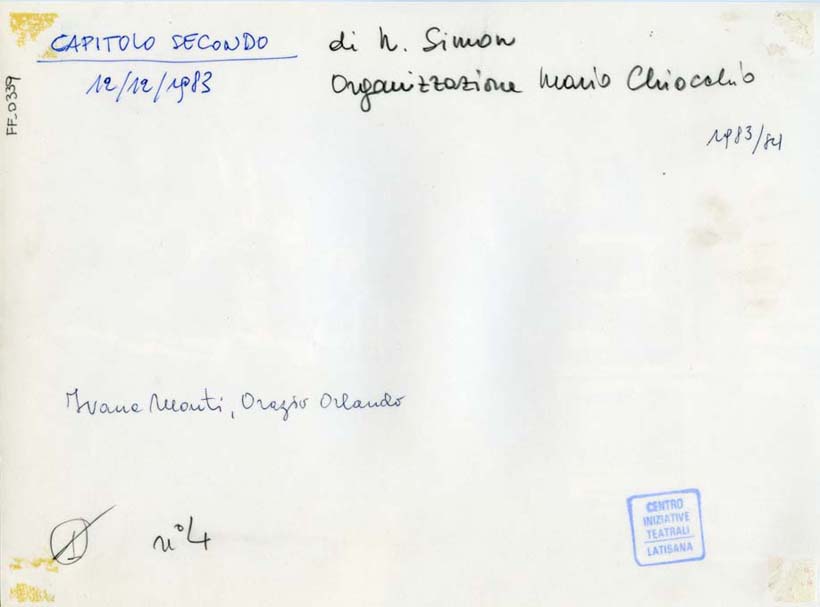 CAPITOLO SECONDO
12/12/1983
di N. Simon
Organizzazione Mario Chiocchio
1983/84
FF_0339
Ivana Monti, Orazio Orlando
1
n° 4
CENTRO
INIZIATIVE
TEATRALI
LATISANA